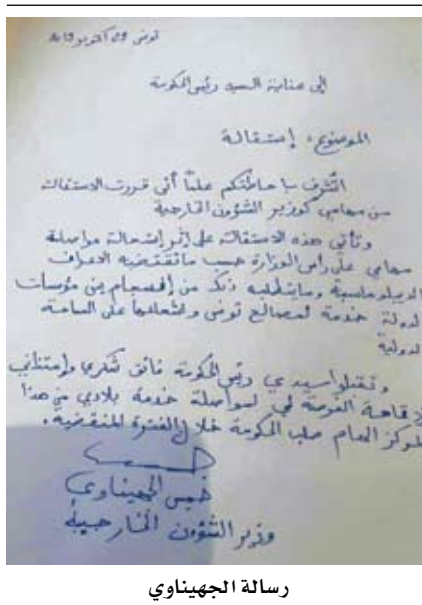 تونس 29 أكتوبر 2019
إلى عناية السيد رئيس الحكومة
الموضوع: إستقالة
أتشرف بإحاطتكم علما أني قررت الاستقالة
من مهامي كوزير الشؤون الخارجية
وتأتي هذه الاستقالة على إثر إستحالة مواصلة
مهامي على رأس الوزارة حسب ما تقتضيه الاعراف
الديبلوماسية وما يتطلبه ذلك من إنسجام بين مؤسسات
لدولة خدمة لمصالح تونس و لإشعاعها على الساحة
لدولية
وتقبلوا سيدي رئيس الحكومة فائق شكري وإمتناني
لإتاحة الفرصة لي لمواصلة خدمة بلادي من هذا
لمركز الهام صلب الحكومة خلال الفترة المنقضية.
خميس الجهيناوي
وزير الشؤون الخارجية
رسالة الجهيناوي